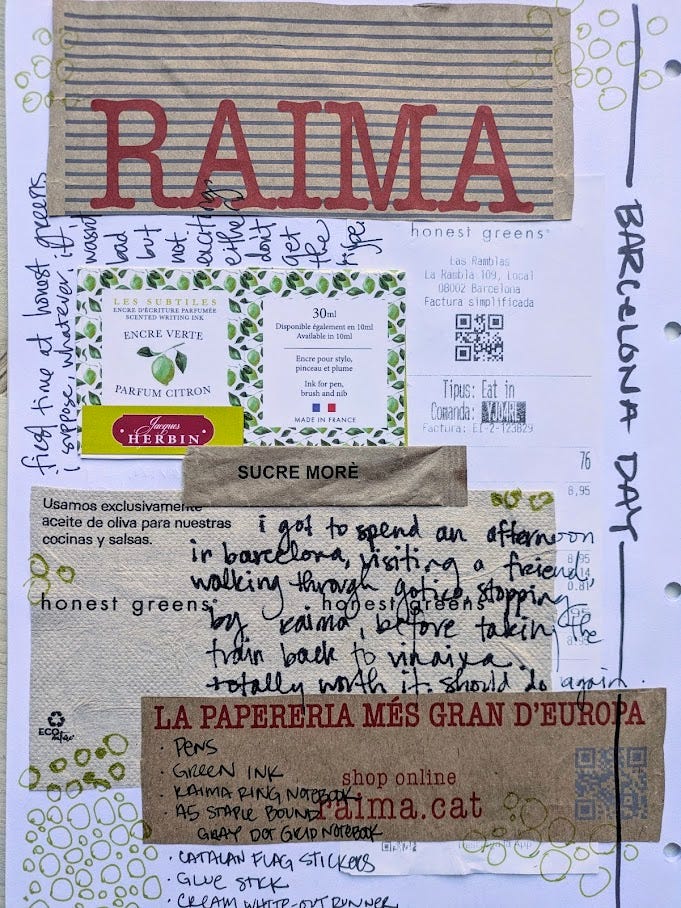 RAIMA
BARCELONA DAY
first time at honest greens
i suppose, whatever. it
wasn't
bad
but
not
exciting
either.
don't
get
the
hype
honest greens
Las Ramblas
La Rambla 109, Local
08002 Barcelona
Factura simplificada
Tipus: Eat in
Comanda:
Factura: EI-2-123829
76
8,95
8,95
0.81
LES SUBTILES
ENCRE D'ÉCRITURE PARFUMÉE
SCENTED WRITING INK
ENCRE VERTE
PARFUM CITRON
Jacques
HERBIN
30ml
Disponible également en 10ml
Available in 10ml
Encre pour stylo,
pinceau et plume
Ink for pen,
brush and nib
MADE IN FRANCE
SUCRE MORÈ
Usamos exclusivamente
aceite de oliva para nuestras
cocinas y salsas.
honest greens
honest greens
ECO
i got to spend an afternoon
in barcelona, visiting a friend,
walking through gotico, stopping
by raima, before taking the
train back to vinaixa.
totally worth it. should do again.
LA PAPERERIA MÉS GRAN D'EUROPA
shop online
raima.cat
· PENS
· GREEN INK
· RAIMA RING NOTEBOOK
· A5 STAPLE BOUND
GRAY DOT GRID NOTEBOOK
· CATALAN FLAG STICKERS
· GLUE STICK
· CREAM WHITE-OUT RUNNER